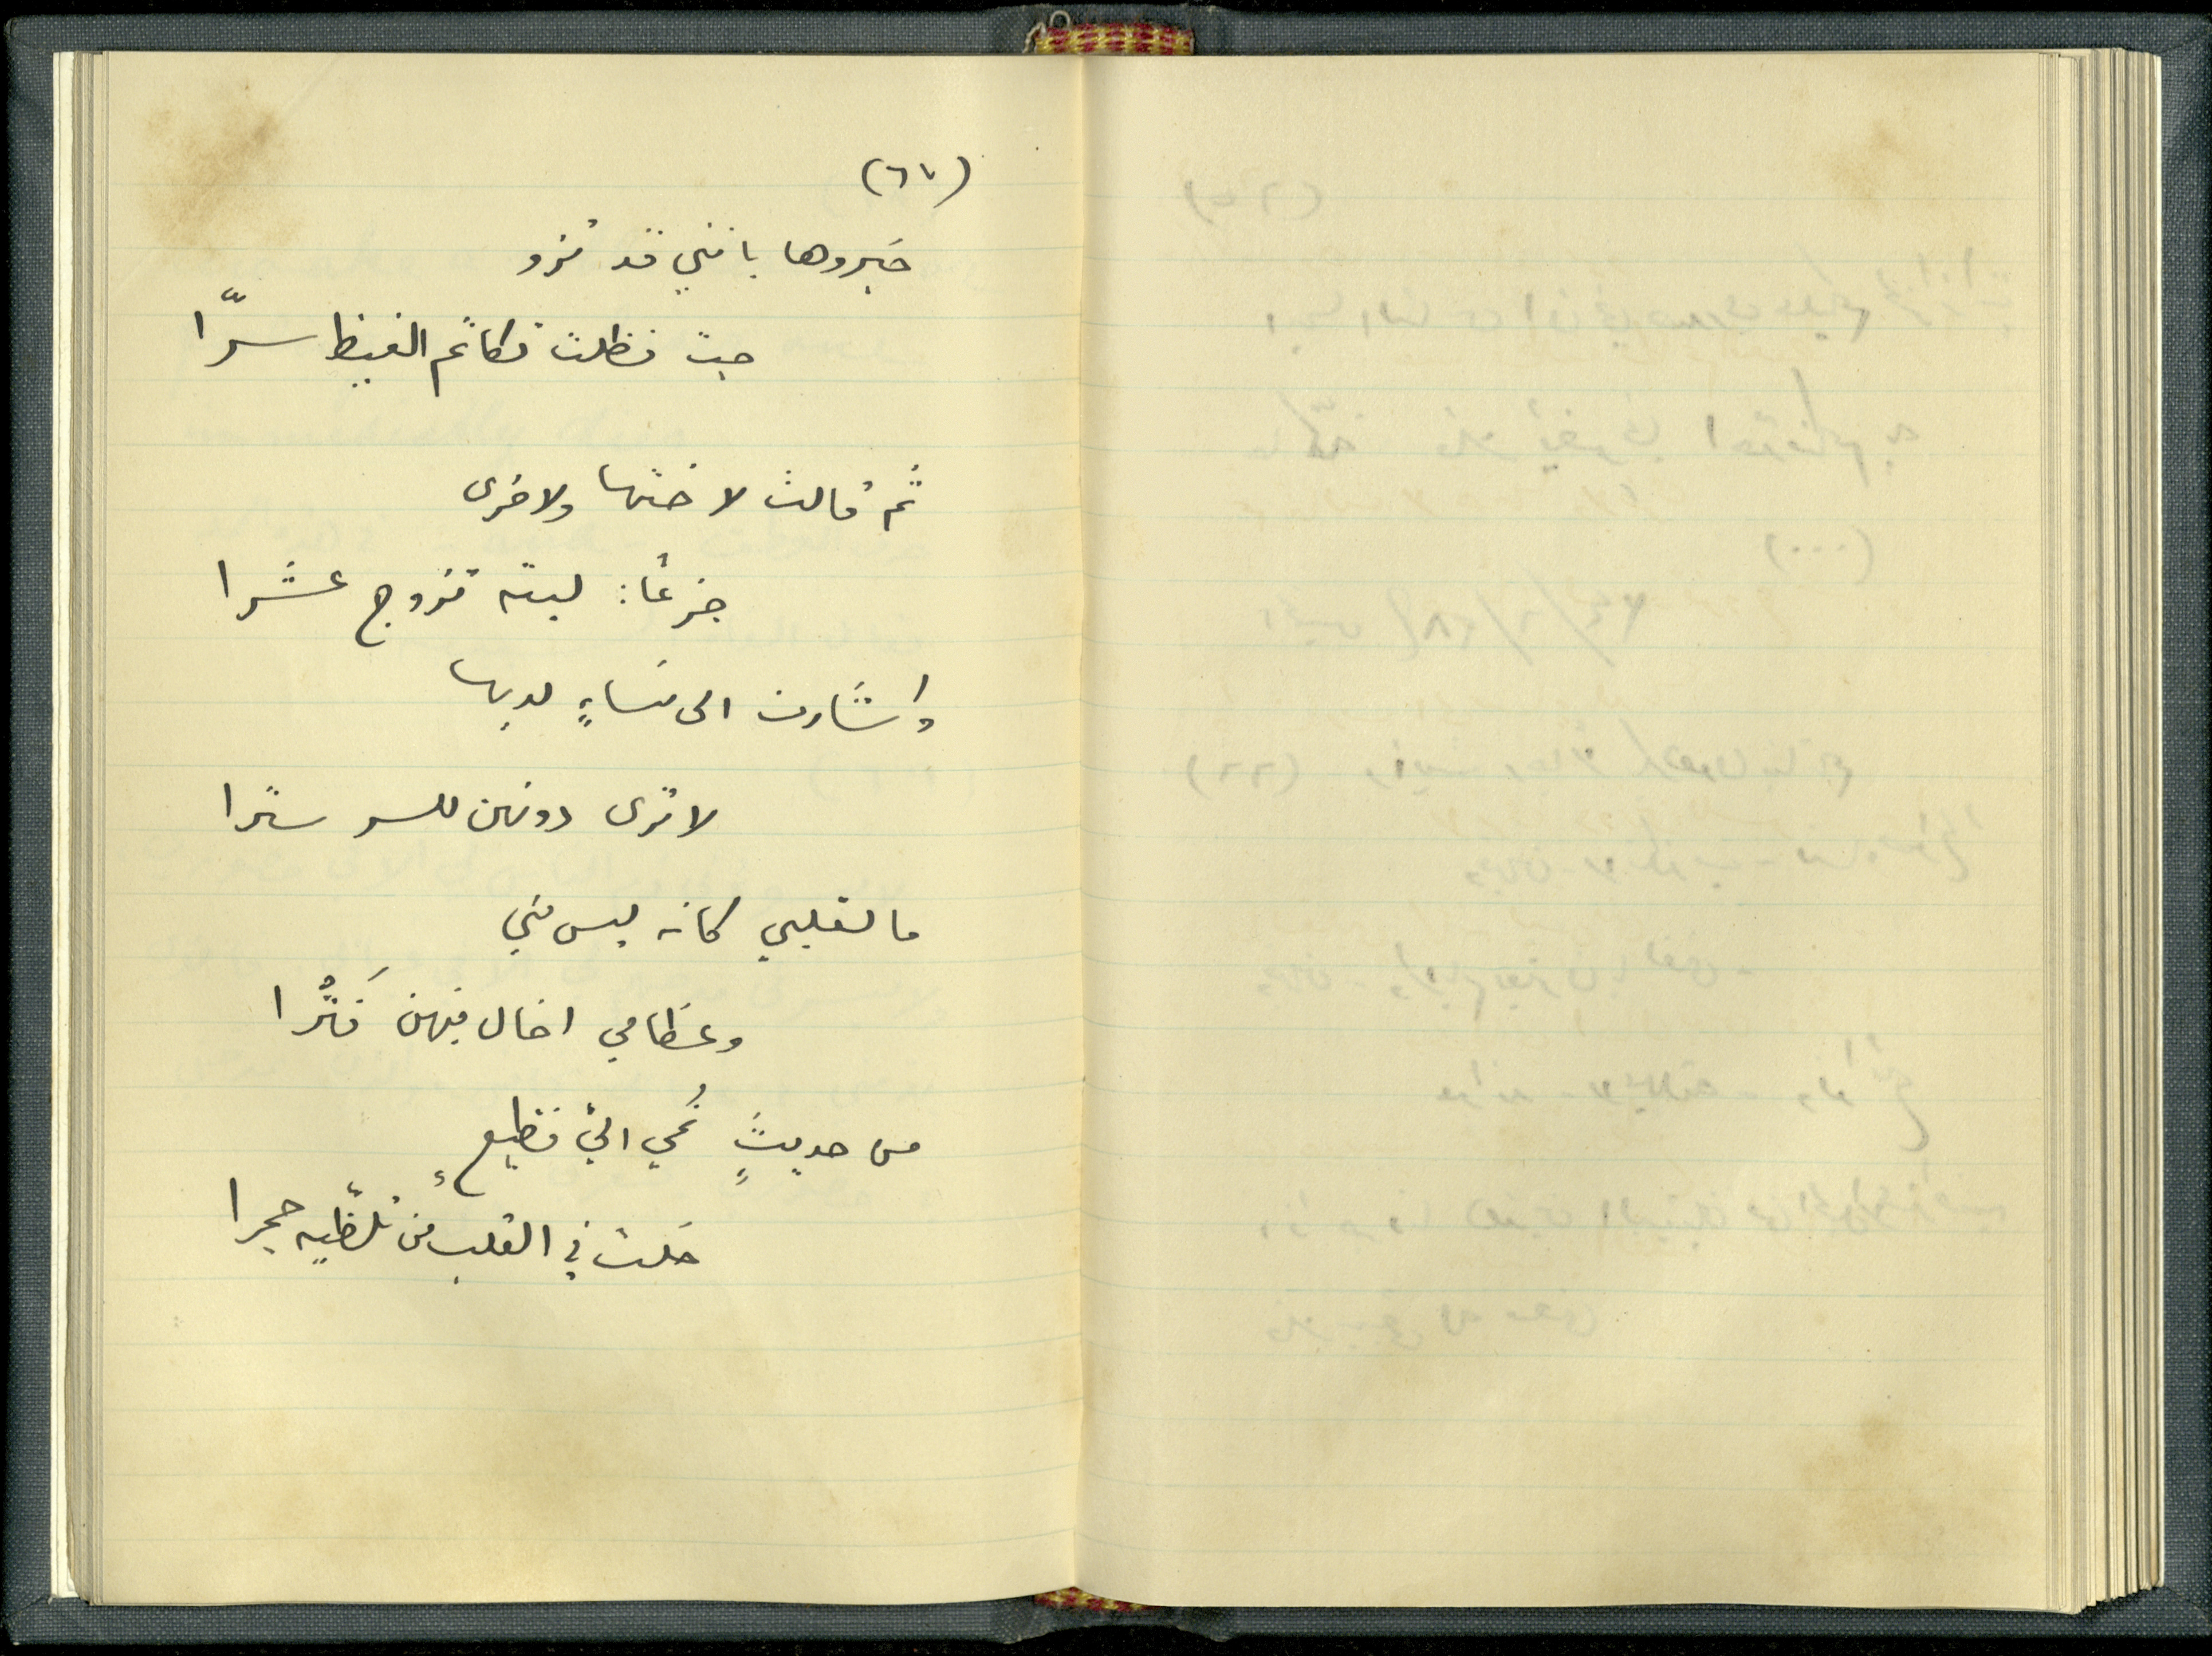 (٦٧)
خبروها بانني قد تزو
جت فظلت تكاتم الغيظ سرّا
ثم قالت لاختها ولاخرى
جزعًا: ليته تزوج عشرا
واشارت الى نساءٍ لديها
لا ترى دونهن للسر سترا
ما لقلبي كانه ليس مني
وعظامي اخال فيهن فَتْرا
من حديثٍ نُمي اليّ فظيعٍ
خلت في القلب من تلظّيه جمرا